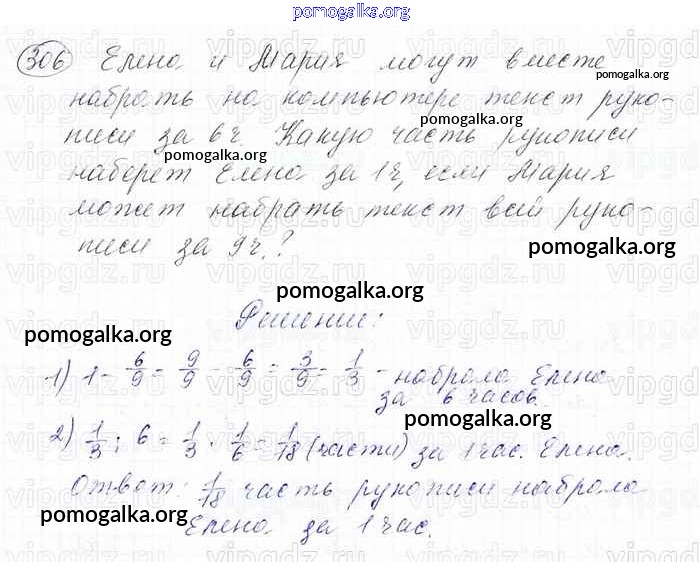 pomogalka.org
306 Елена и Мария могут вместе
pomogalka.org
набрать на компьютере текст руко-
pomogalka.org
писи за 6ч. Какую часть рукописи
pomogalka.org
наберет Елена за 1ч, если Мария
может набрать текст всей руко-
писи за 9ч.?
pomogalka.org
pomogalka.org
Решение:
pomogalka.org
1) 1 - 6/9 = 9/9 - 6/9 = 3/9 = 1/3 - набрала Елена
за 6 часов.
pomogalka.org
2) 1/3 : 6 = 1/3 · 1/6 = 1/18 (части) за 1 час. Елена.
Ответ: 1/18 часть рукописи набрала
pomogalka.org
Елена за 1 час.